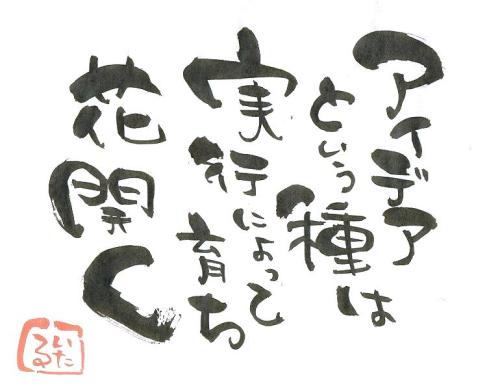 アイデア
という種は
実行によって
育ち
花開く
いたる